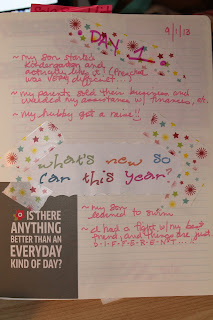 9/1/13
DAY 1.
~ my son started
kindergarten and
actually likes it! (Preschool
was VERY different...)
~ my parents sold their business and
needed my assistance w/ finances, etc.
~ my hubby got a raise!!
what's new so
far this year?
~ my son
learned to swim
~ I had a fight w/ my best
friend, and things are just
D-I-F-F-E-R-E-N-T....
IS THERE
ANYTHING
BETTER THAN AN
EVERYDAY
KIND OF DAY?